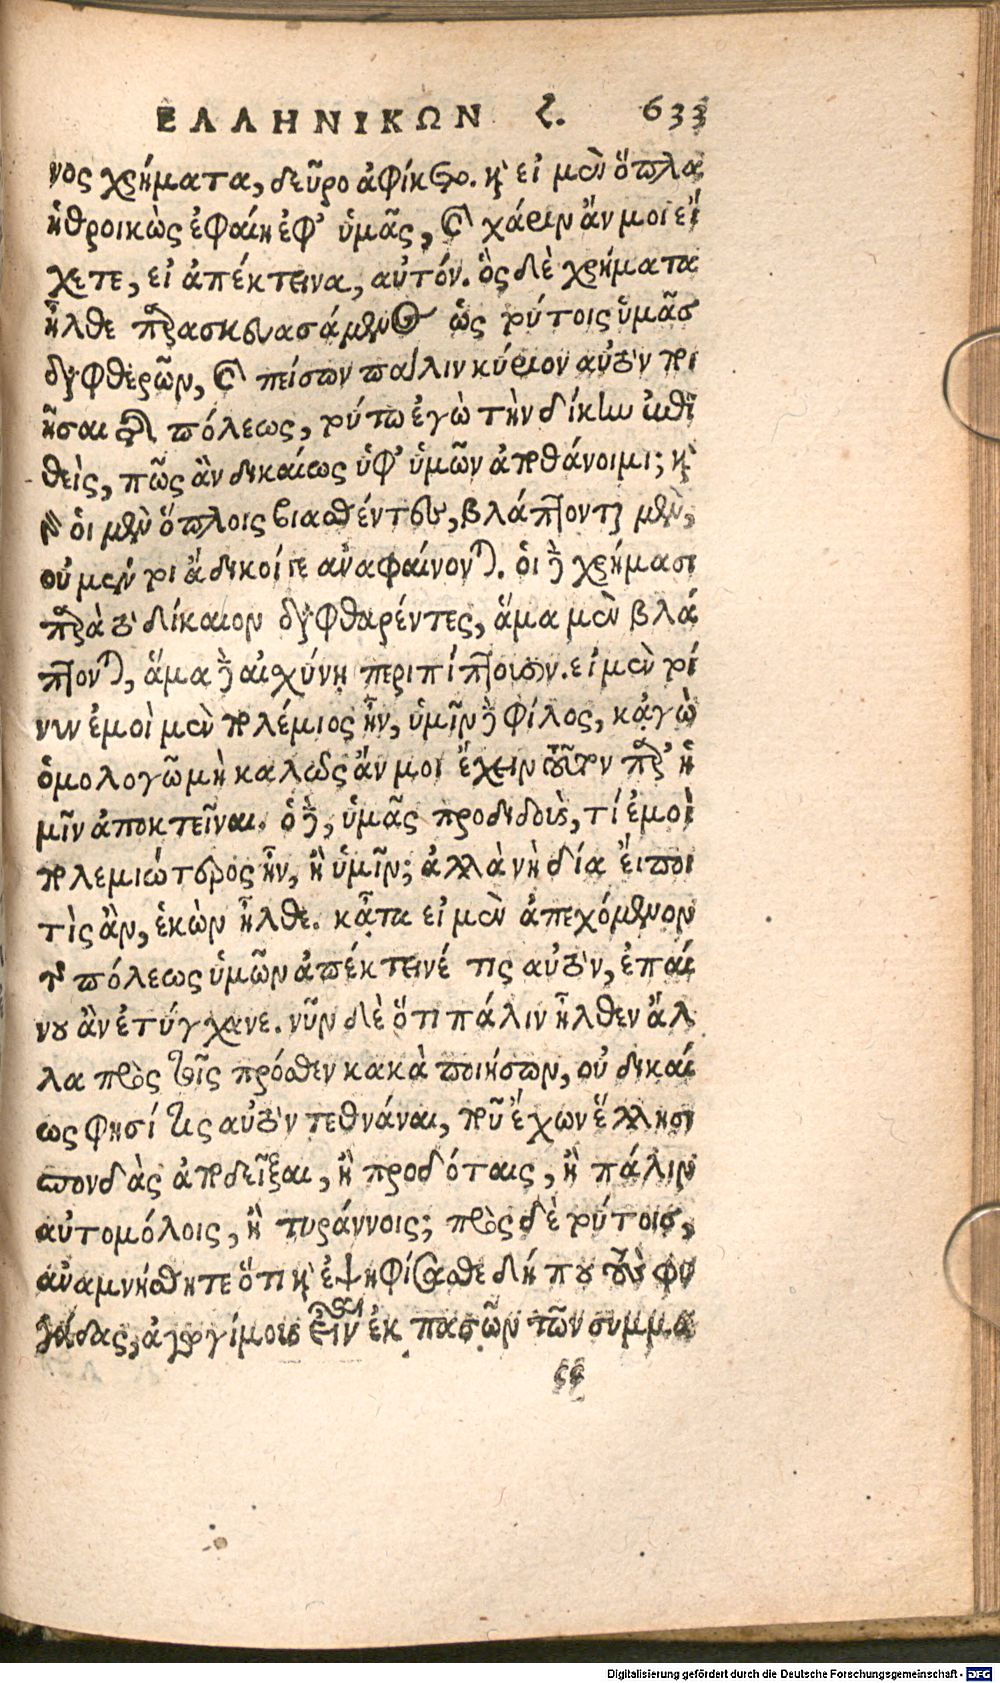 ΕΛΛΗΝΙΚΩΝ ζ. 633
νος χρήματα, δεῦρο ἀφίκετο. καὶ εἰ μὲν ὅπλα
ἠθροικὼς ἐφαίνη ἐφ' ὑμᾶς, καὶ χάριν ἄν μοι εἴ
χετε, εἰ ἀπέκτεινα, αὐτόν. ὃς δὲ χρήματα
ἦλθε παρασκευασάμενος ὡς τούτοις ὑμᾶς
διαφθερῶν, καὶ πείσων πάλιν κύριον αὐτὸν ποι
ῆσαι τῆς πόλεως, τούτῳ ἐγὼ τὴν δίκην ἐπιθεὶς
θεὶς, πῶς ἂν δικαίως ὑφ' ὑμῶν ἀποθάνοιμι; καὶ
γὰρ οἱ μὲν ὅπλοις βιασθέντες, βλάπτονται μὲν,
οὐ μέντοι ἄδικοί γε ἀναφαίνονται. οἱ δὲ χρήμασι
παρὰ τὸ δίκαιον διαφθαρέντες, ἅμα μὲν βλά
πτονται, ἅμα δὲ αἰσχύνῃ περιπίπτουσιν. εἰ μὲν τοί
νυν ἐμοὶ μὲν πολέμιος ἦν, ὑμῖν δὲ φίλος, κἀγὼ
ὁμολογῶ μὴ καλῶς ἄν μοι ἔχειν τοῦτον παρ' ὑ
μῖν ἀποκτεῖναι. ὁ δὲ, ὑμᾶς προδιδοὺς, τί ἐμοὶ
πολεμιώτερος ἦν, ἢ ὑμῖν; ἀλλὰ νὴ δία εἴποι
τὶς ἂν, ἑκὼν ἦλθε. κᾆτα εἰ μὲν ἀπεχόμενον
τῆς πόλεως ὑμῶν ἀπέκτεινέ τις αὐτὸν, ἐπαί
νου ἂν ἐτύγχανε. νῦν δὲ ὅτι πάλιν ἦλθεν ἄλ
λα πρὸς τοῖς πρόσθεν κακὰ ποιήσων, οὐ δικαί
ως φησί τις αὐτὸν τεθνάναι, ποῦ ἔχων ἕλλησι
σπονδὰς ἀποδεῖξαι, ἢ προδόταις, ἢ πάλιν
αὐτομόλοις, ἢ τυράννοις; πρὸς δὲ τούτοις,
ἀναμνήσθητε ὅτι καὶ ἐψηφίσασθε δήπου τοὺς φυ
γάδας, ἀγωγίμους εἶναι ἐκ πασῶν τῶν συμμα
ςς
Digitalisierung gefördert durch die Deutsche Forschungsgemeinschaft - DFG